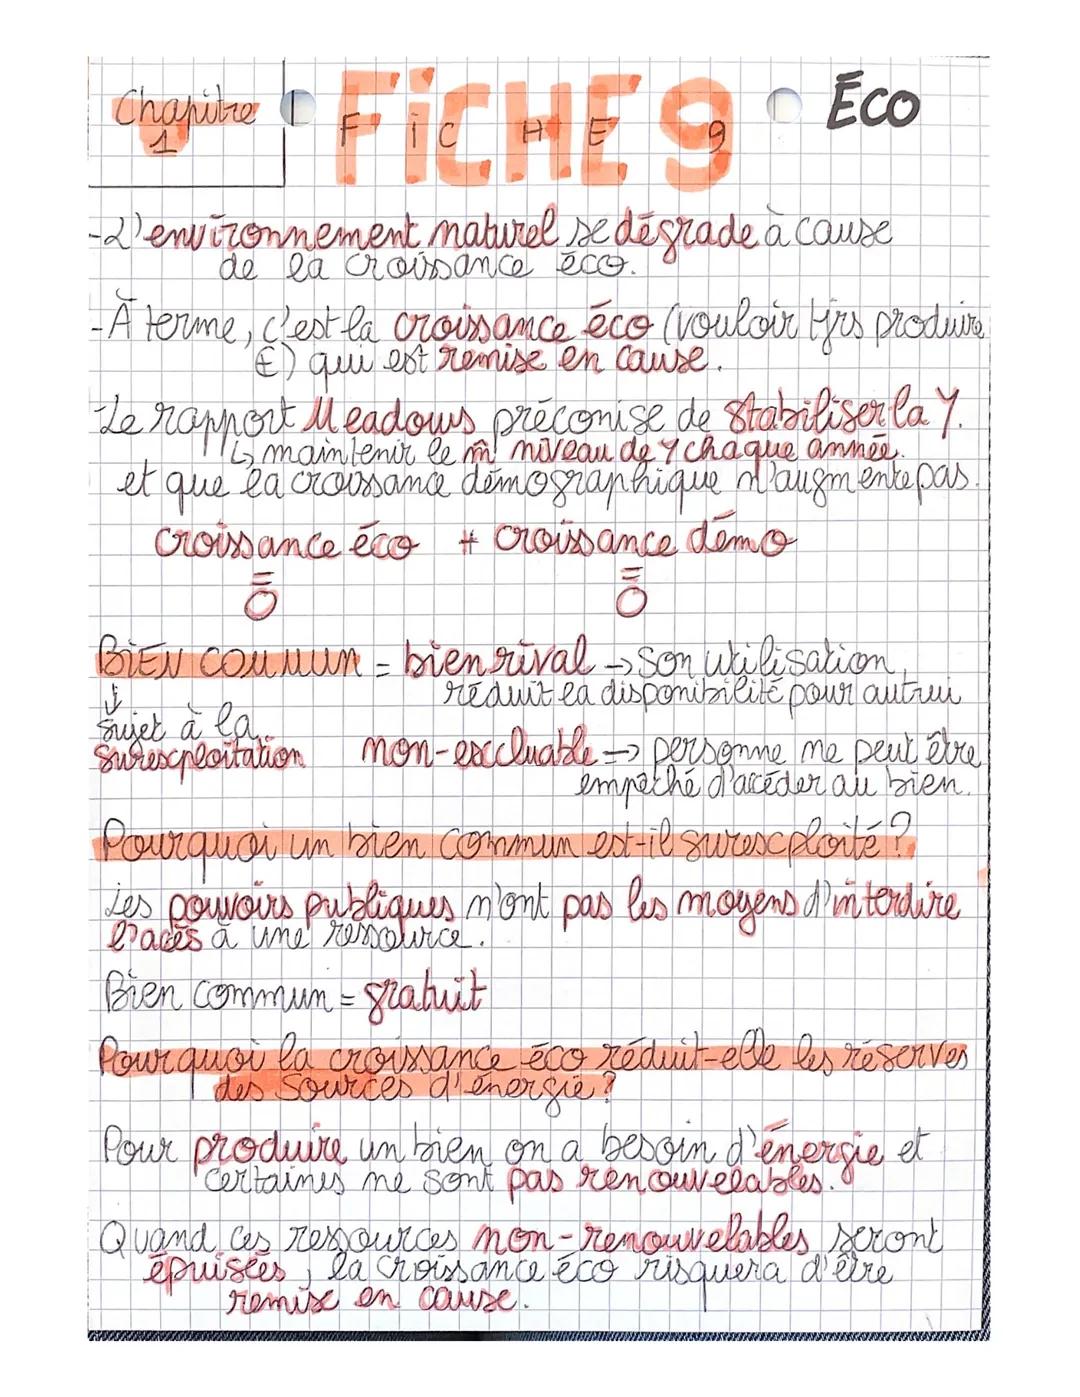 Chapitre 1
FiCHE 9
F i C H E 9
Éco
-L'environnement naturel se dégrade à cause
de la croissance éco.
-À terme, c'est la croissance éco (vouloir tjrs produire
€) qui est remise en cause.
-Le rapport Meadows préconise de stabiliser la Y.
↳ maintenir le m̂ niveau de Y chaque année.
et que la croissance démographique n'augmente pas.
croissance éco + croissance démo
= =
0 0
BiEN COMMUN = bien rival → Son utilisation
réduit la disponibilité pour autrui
↓
Sujet à la
surexploitation non-excluable → personne ne peut être
empêché d'accéder au bien.
Pourquoi un bien commun est-il surexploité?
Les pouvoirs publiques n'ont pas les moyens d'interdire
l'accès à une ressource.
Bien commun = gratuit
Pourquoi la croissance éco réduit-elle les réserves
des sources d'énergie?
Pour produire un bien on a besoin d'énergie et
certaines ne sont pas renouvelables.
Quand ces ressources non-renouvelables seront
épuisées, la croissance éco risquera d'être
remise en cause.